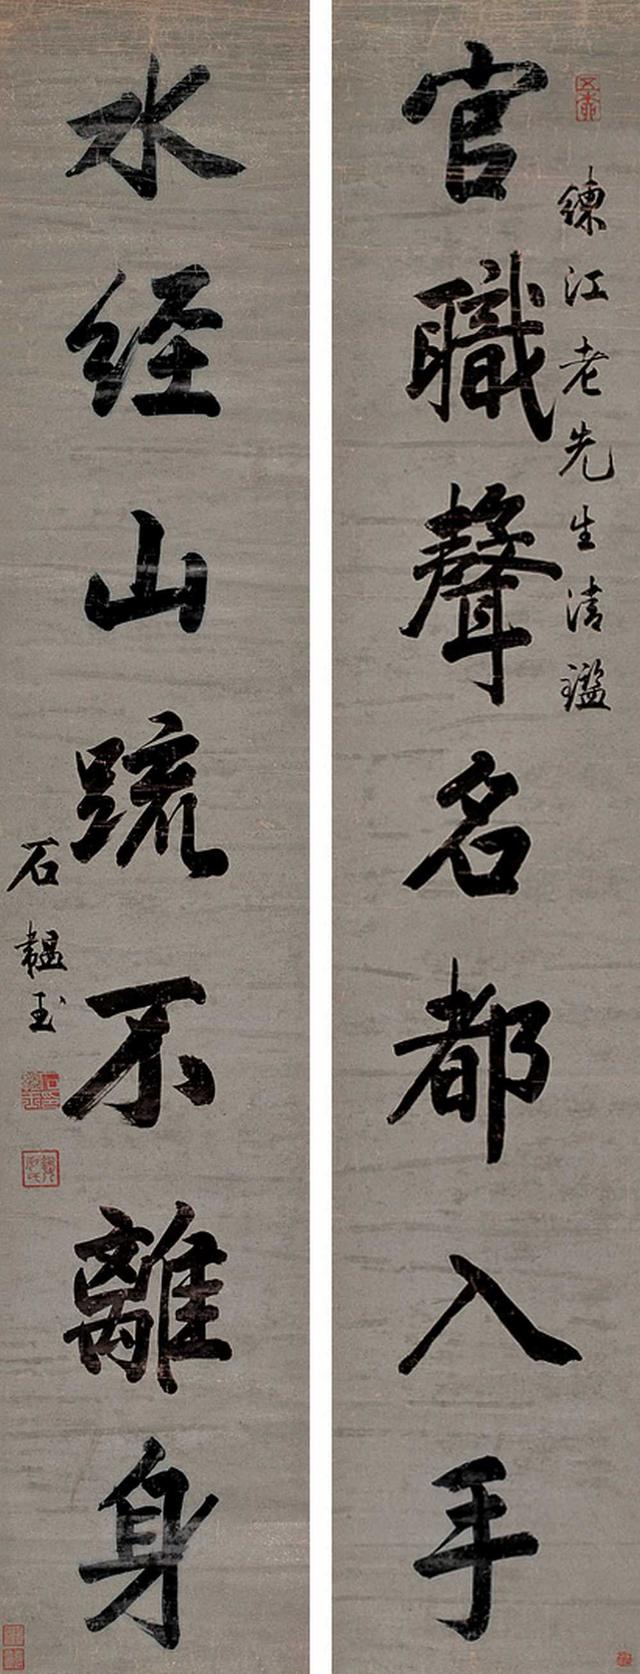 鍊江老先生清鑑
官職聲名都入手
水经山䟽不離身
石韞玉